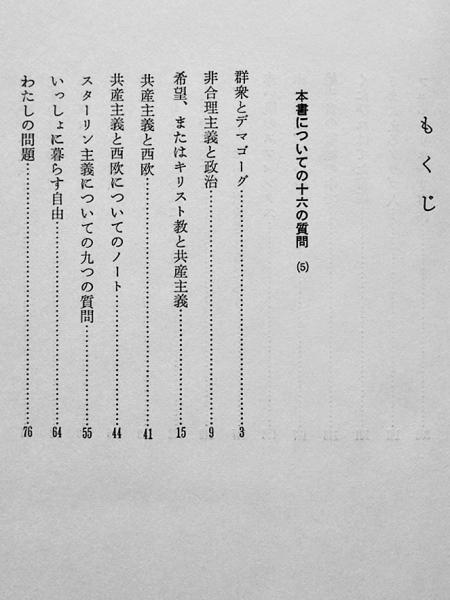 もくじ
本書についての十六の質問 (5)
群衆とデマゴーグ……………………3
非合理主義と政治……………………9
希望、またはキリスト教と共産主義……………………15
共産主義と西欧……………………41
共産主義と西欧についてのノート……………………44
スターリン主義についての九つの質問……………………55
いっしょに暮らす自由……………………64
わたしの問題……………………76